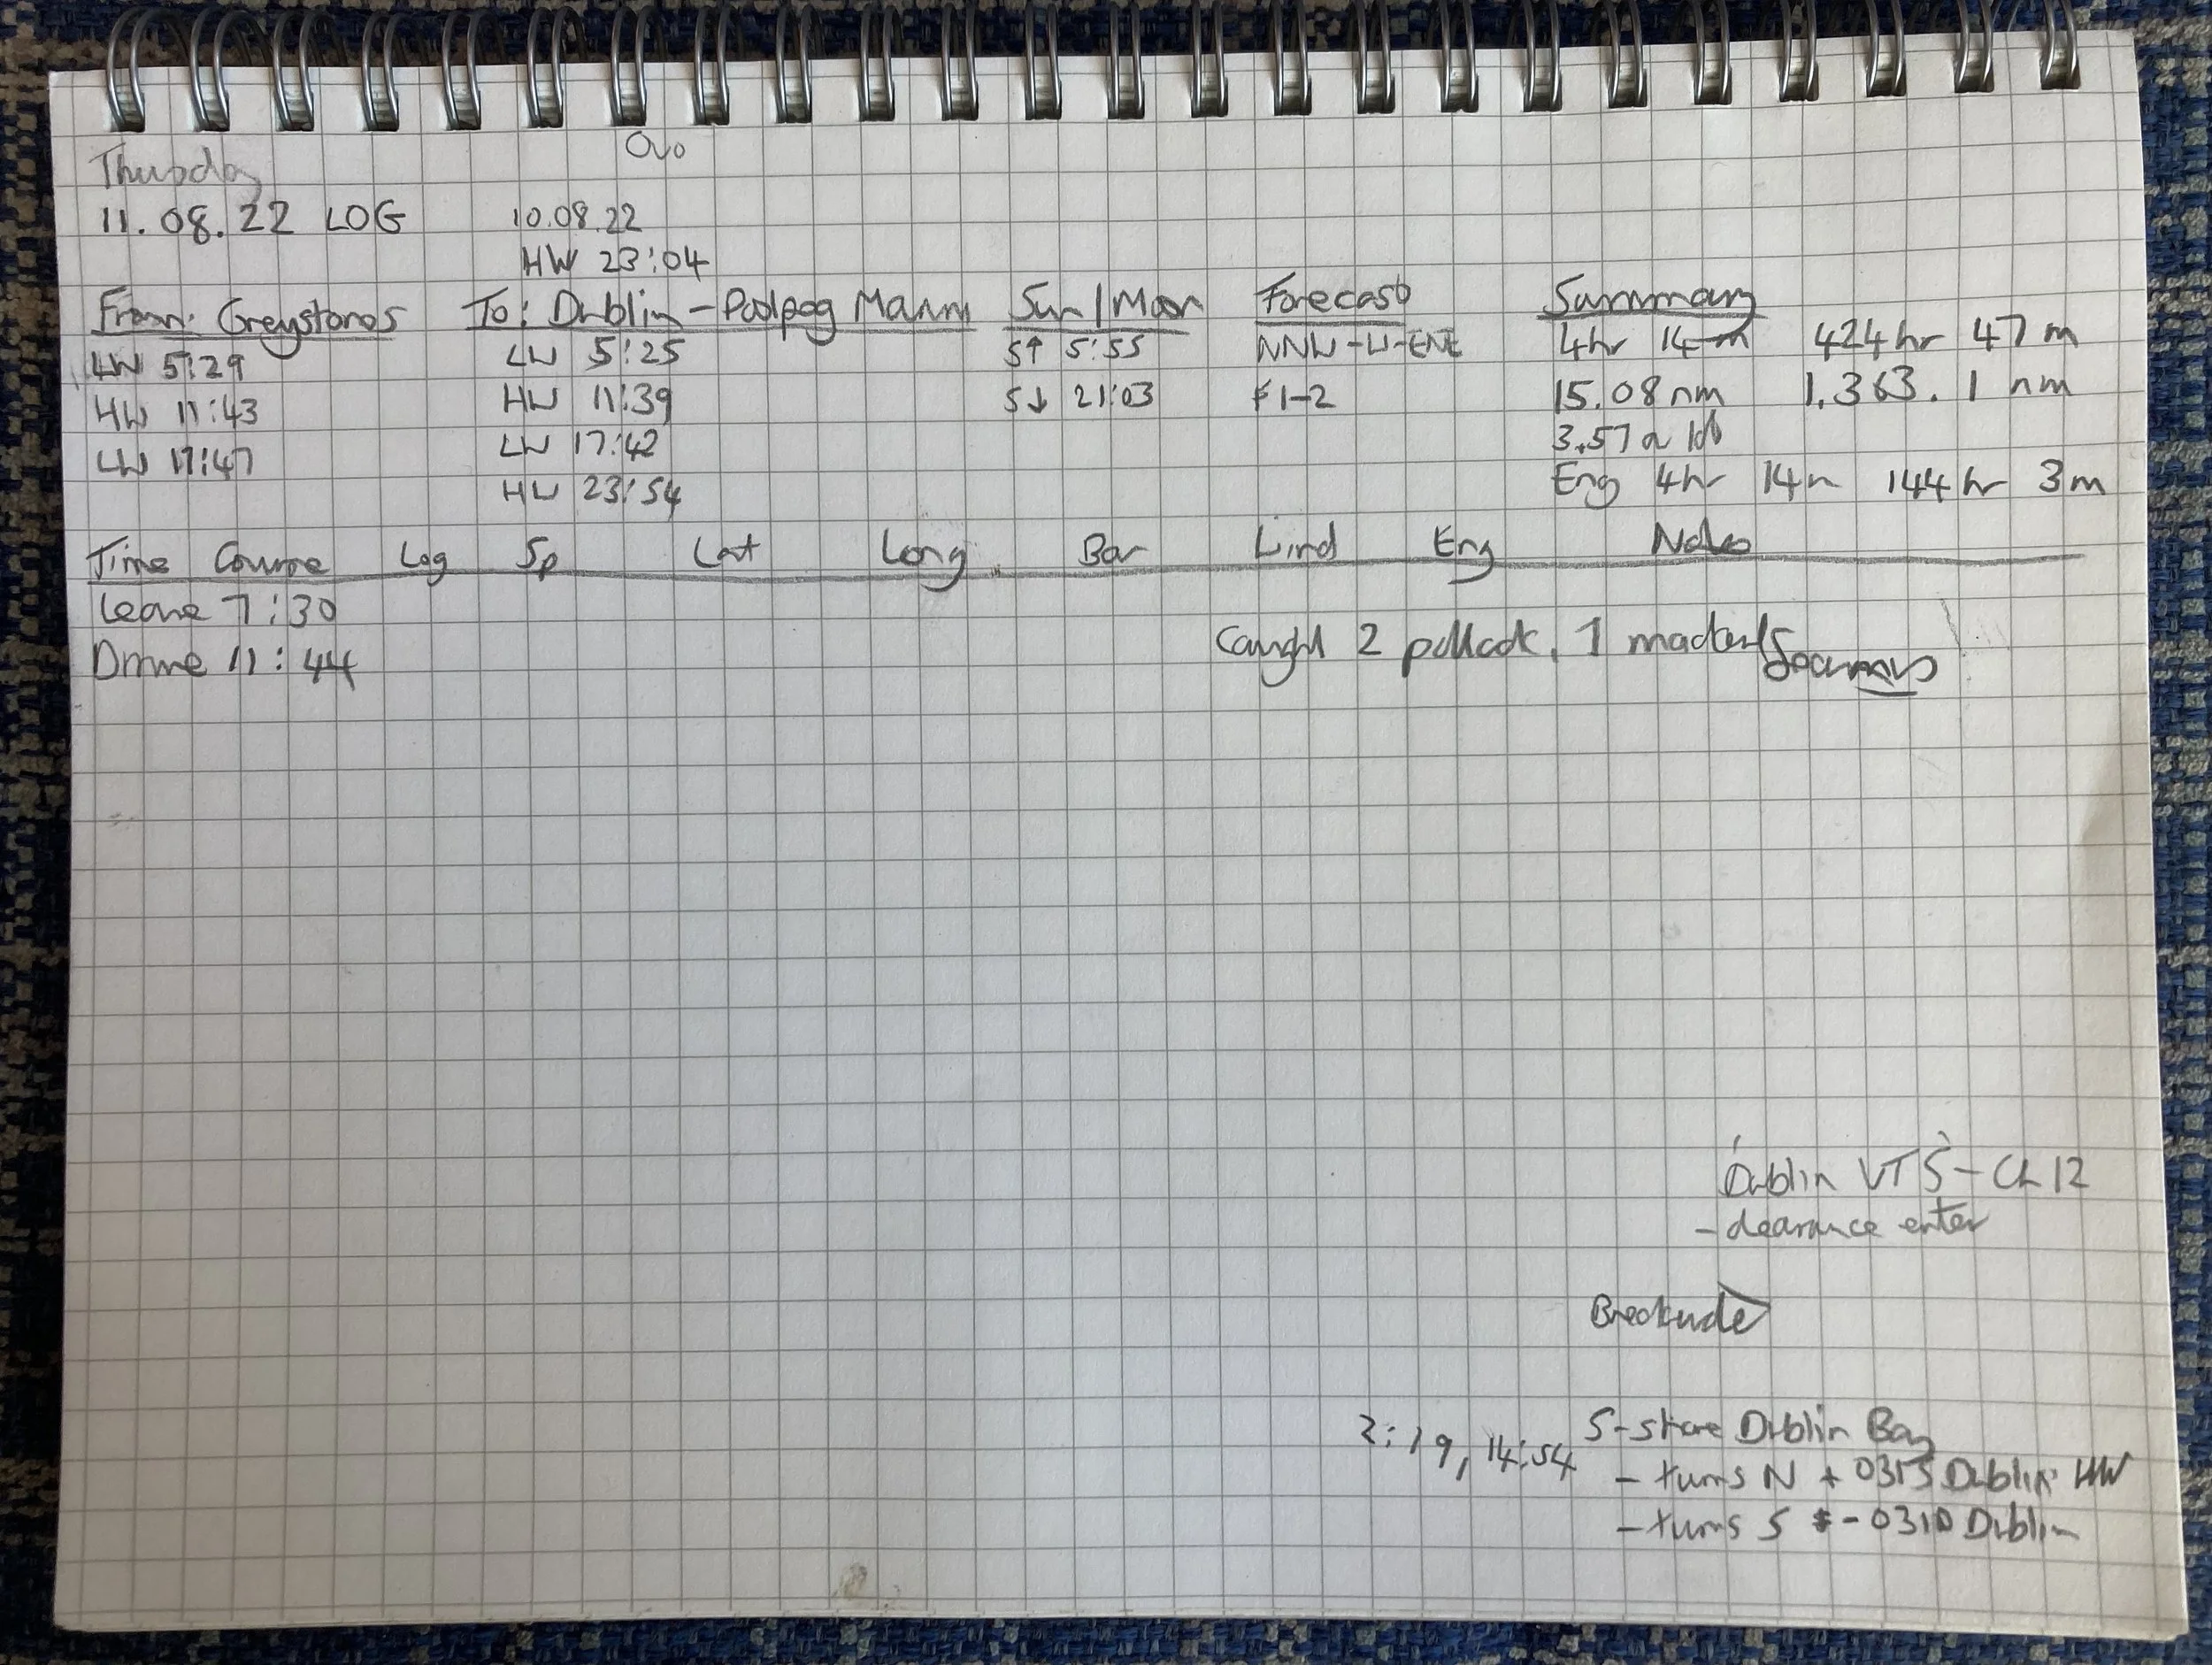 Thursday
11.08.22 LOG
10.08.22
HW 23:04
From: Greystones To: Dublin - Poolbeg Marina Sun/Moon Forecast Summary
LW 5:29 LW 5:25 S↑ 5:55 NNW-W-ENE 4hr 14m 424hr 47m
HW 11:43 HW 11:39 S↓ 21:03 F1-2 15.08nm 1,363.1 nm
LW 17:47 LW 17:42 3.57 a
HW 23:54 Eng 4hr 14m 144hr 3m
Time Course Log Sp Lat Long Bar Wind Eng Notes
Leave 7:30
Arrive 11:44 Caught 2 pollock, 1 mackerel
Dublin VTS - Ch 12
- clearance enter
Breakwater
2:19, 14:54 S-shore Dublin Bay
- turns N + 0315 Dublin HW
- turns S - 0310 Dublin